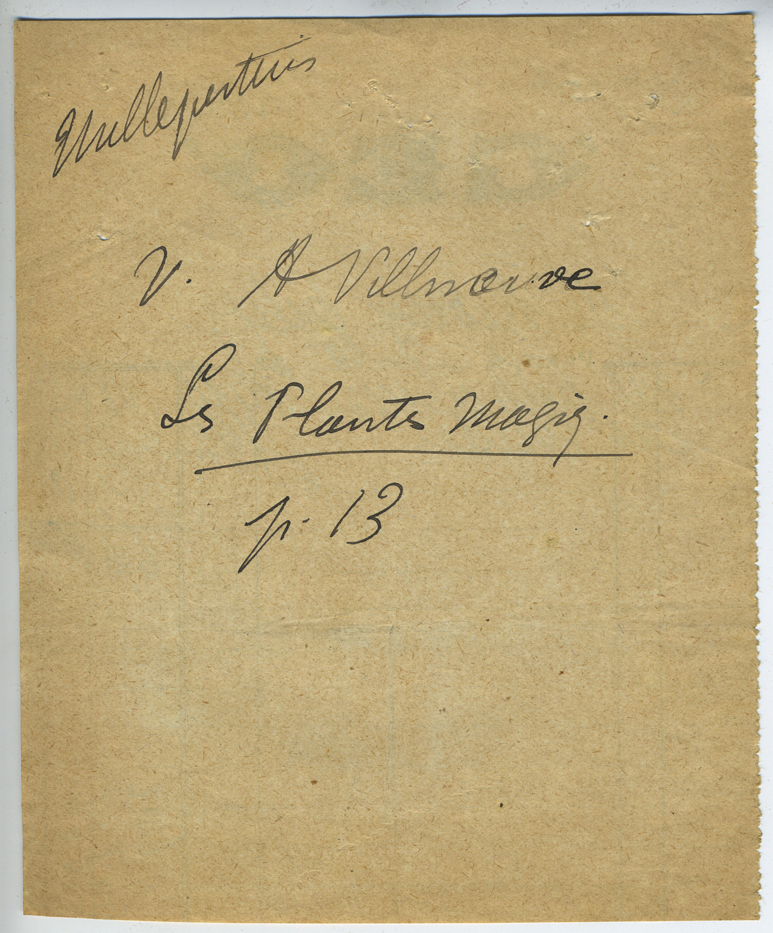 Millepertuis
V. A Villeneuve
Les Plantes Magiq.
p. 13